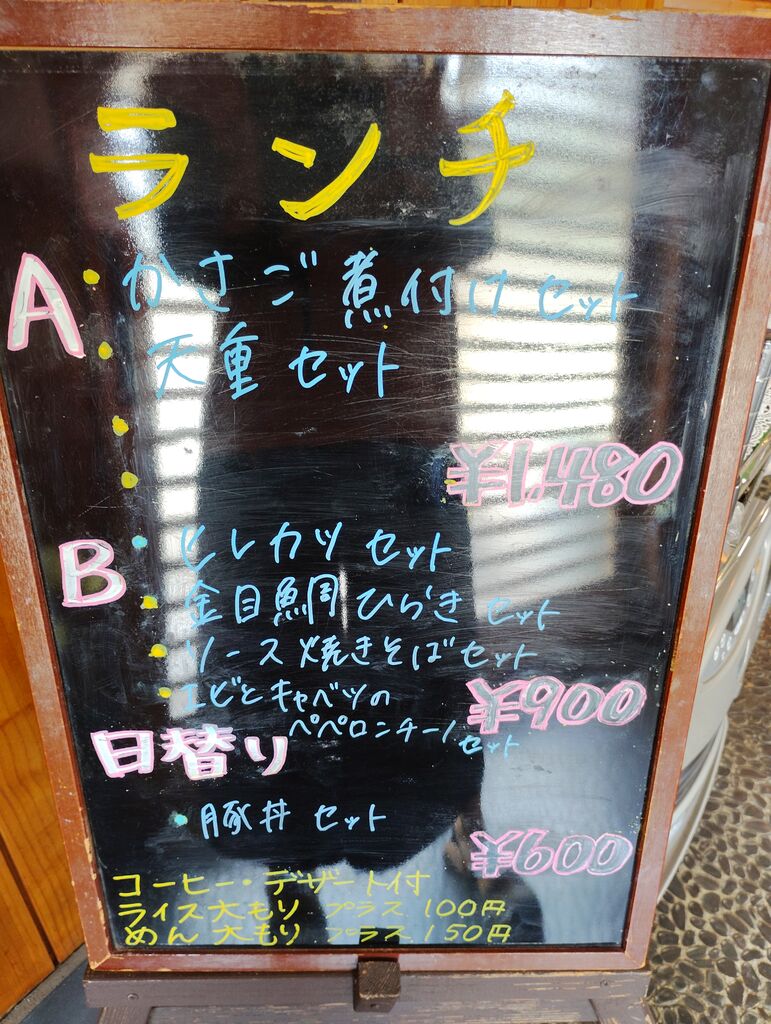 ランチ
A・かさご煮付けセット
・天重セット
・
・
¥1.480
B・ヒレカツセット
・金目鯛ひらきセット
・ソース焼きそばセット
・エビとキャベツの
ペペロンチーノセット
¥900
日替り
・豚丼セット
¥600
コーヒー・デザート付
ライス大もり プラス 100円
めん 大もり プラス 150円